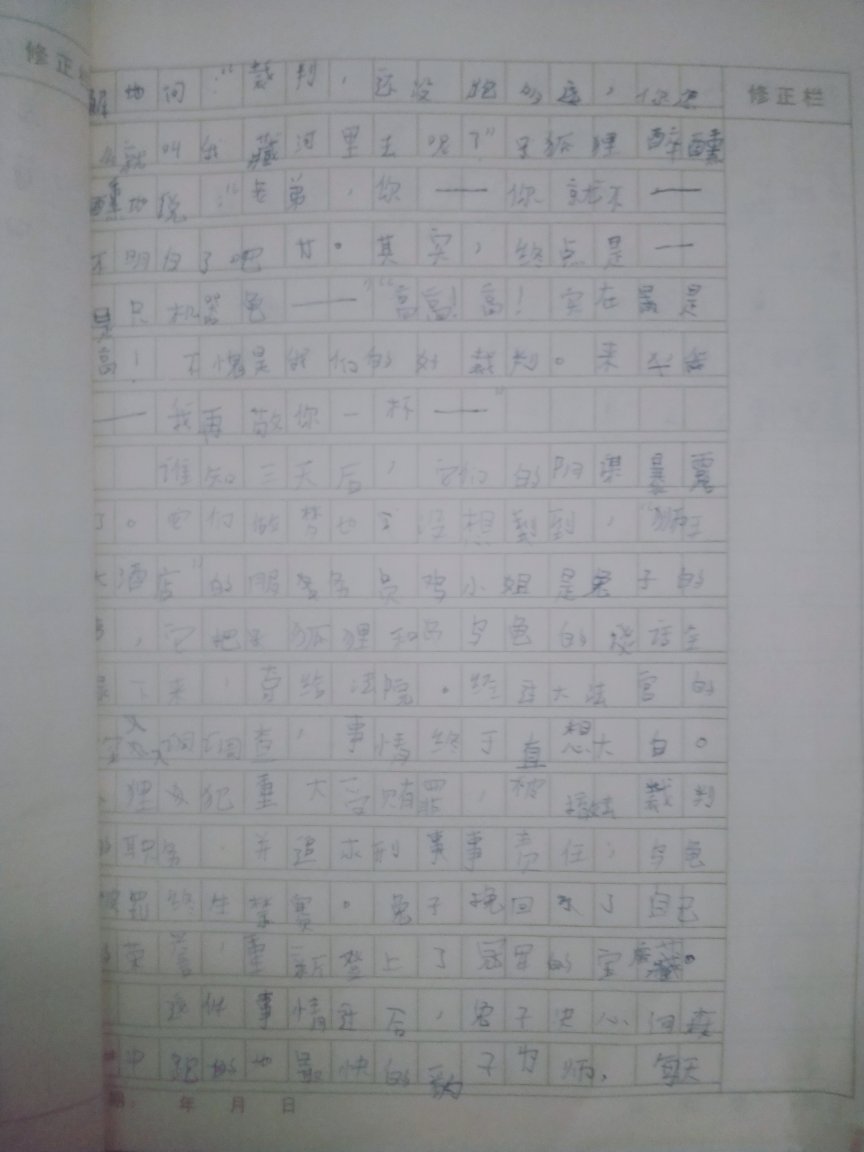 修正栏
修正栏
解地问：“裁判，还没跑的远，你怎
么就叫我藏河里去呢了”呈狐狸醉醺
醺地说：“兄弟，你——你就不——
不明白了吧甘。其实，终点是——
是只机器龟——”“高高！高！实在是
高！不愧是我们的好裁判。来
——我再敬你一杯——”
谁知三天后，它们的阴谋暴露
了。它们做梦也没想到，“狮王
大酒店”的服务员鸡小姐是兔子的
，它把狐狸和乌龟的谈话全
录下来，寄给法院。经过大法官的
调查，事情终于直想大白。
狸因犯重大受贿罪，被裁判
的职务，并追求刑事责任；乌龟
被罚终生禁赛。兔子挽回来了自己
的荣誉，重新登上了冠军的宝藏。
这件事情过后，兔子决心问森
中跑的也最快的豹子为师，每天
年 月 日